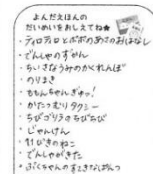 よんだえほんの
だいめいをおしえてね★
・ティロティロとポポのあさのおはなし
・でんしゃのずかん
・ちいさなうみのかくれんぼ
・のりまき
・ももんちゃんぎゅッ!
・かたつむりタクシー
・ちびゴリラのちびちび
・じゃんけん
・11ぴきのねこ
・でんしゃがきた
・ぶくちゃんのすてきなぱんつ